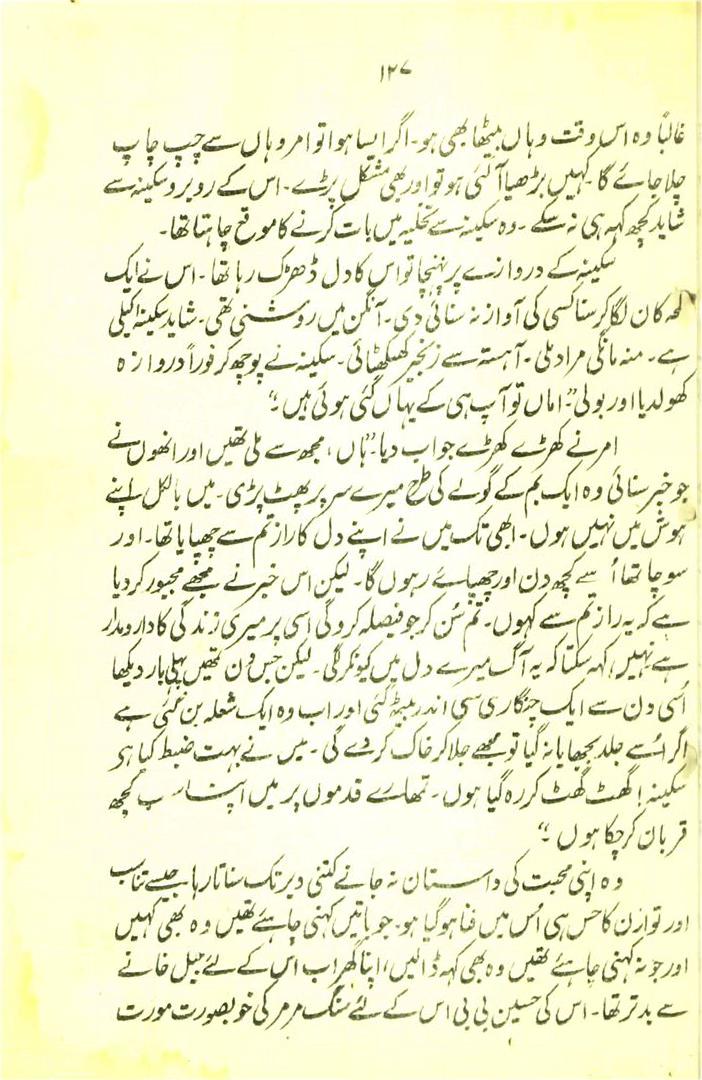 ۱۲۷
غالباً وہ اس وقت وہاں بیٹھا بھی ہو۔ اگر ایسا ہوا تو امر وہاں سے چپ چاپ
چلا جائے گا۔ کہیں بڑھیا آ گئی ہو تو اور بھی مشکل پڑے۔ اس کے روبرو سکینہ سے
شاید کچھ کہہ ہی نہ سکے۔ وہ سکینہ سے تخلیہ میں بات کرنے کا موقع چاہتا تھا۔
سکینہ کے دروازے پر پہنچا تو اس کا دل دھڑک رہا تھا۔ اس نے ایک
لمحہ کان لگا کر سنا کسی کی آواز نہ سنائی دی۔ آنگن میں روشنی تھی۔ شاید سکینہ اکیلی
ہے۔ منہ مانگی مراد ملی۔ آہستہ سے زنجیر کھٹکھٹائی۔ سکینہ نے پوچھ کر فوراً دروازہ
کھولدیا اور بولی۔ "اماں تو آپ ہی کے یہاں گئی ہوئی ہیں۔"
امر نے کھڑے کھڑے جواب دیا۔ "ہاں، مجھ سے ملی تھیں اور انھوں نے
جو خبر سنائی وہ ایک بم کے گولے کی طرح میرے سر پر پھٹ پڑی۔ میں بالکل اپنے
ہوش میں نہیں ہوں۔ ابھی تک میں نے اپنے دل کا راز تم سے چھپایا تھا۔ اور
سوچا تھا اُسے کچھ دن اور چھپائے رہوں گا۔ لیکن اس خبر نے مجھے مجبور کر دیا
ہے کہ یہ راز تم سے کہوں۔ تم سُن کر جو فیصلہ کرو گی اسی پر میری زندگی کا دارومدار
ہے نہیں کہہ سکتا کہ یہ آگ میرے دل میں کیونکر لگی۔ لیکن جس دن تمھیں پہلی بار دیکھا
اُسی دن سے ایک چنگاری سی اندر بیٹھ گئی اور اب وہ ایک شعلہ بن گئی ہے
اگر اُسے جلد بجھایا نہ گیا تو مجھے جلا کر خاک کر دے گی۔ میں نے بہت ضبط کیا ہے
سکینہ! گھٹ گھٹ کر رہ گیا ہوں۔ تمھارے قدموں پر میں اپنا سب کچھ
قربان کر چکا ہوں۔"
وہ اپنی محبت کی داستان نہ جانے کتنی دیر تک سناتا رہا جیسے تناسب
اور توازن کا حس ہی اُس میں فنا ہو گیا ہو۔ جو باتیں کہنی چاہئے تھیں وہ بھی کہیں
اور جو نہ کہنی چاہئے تھیں وہ بھی کہہ ڈالیں، اپنا گھر اب اس کے لئے جیل خانے
سے بدتر تھا۔ اس کی حسین بی بی اس کے لئے سنگ مرمر کی خوبصورت مورت